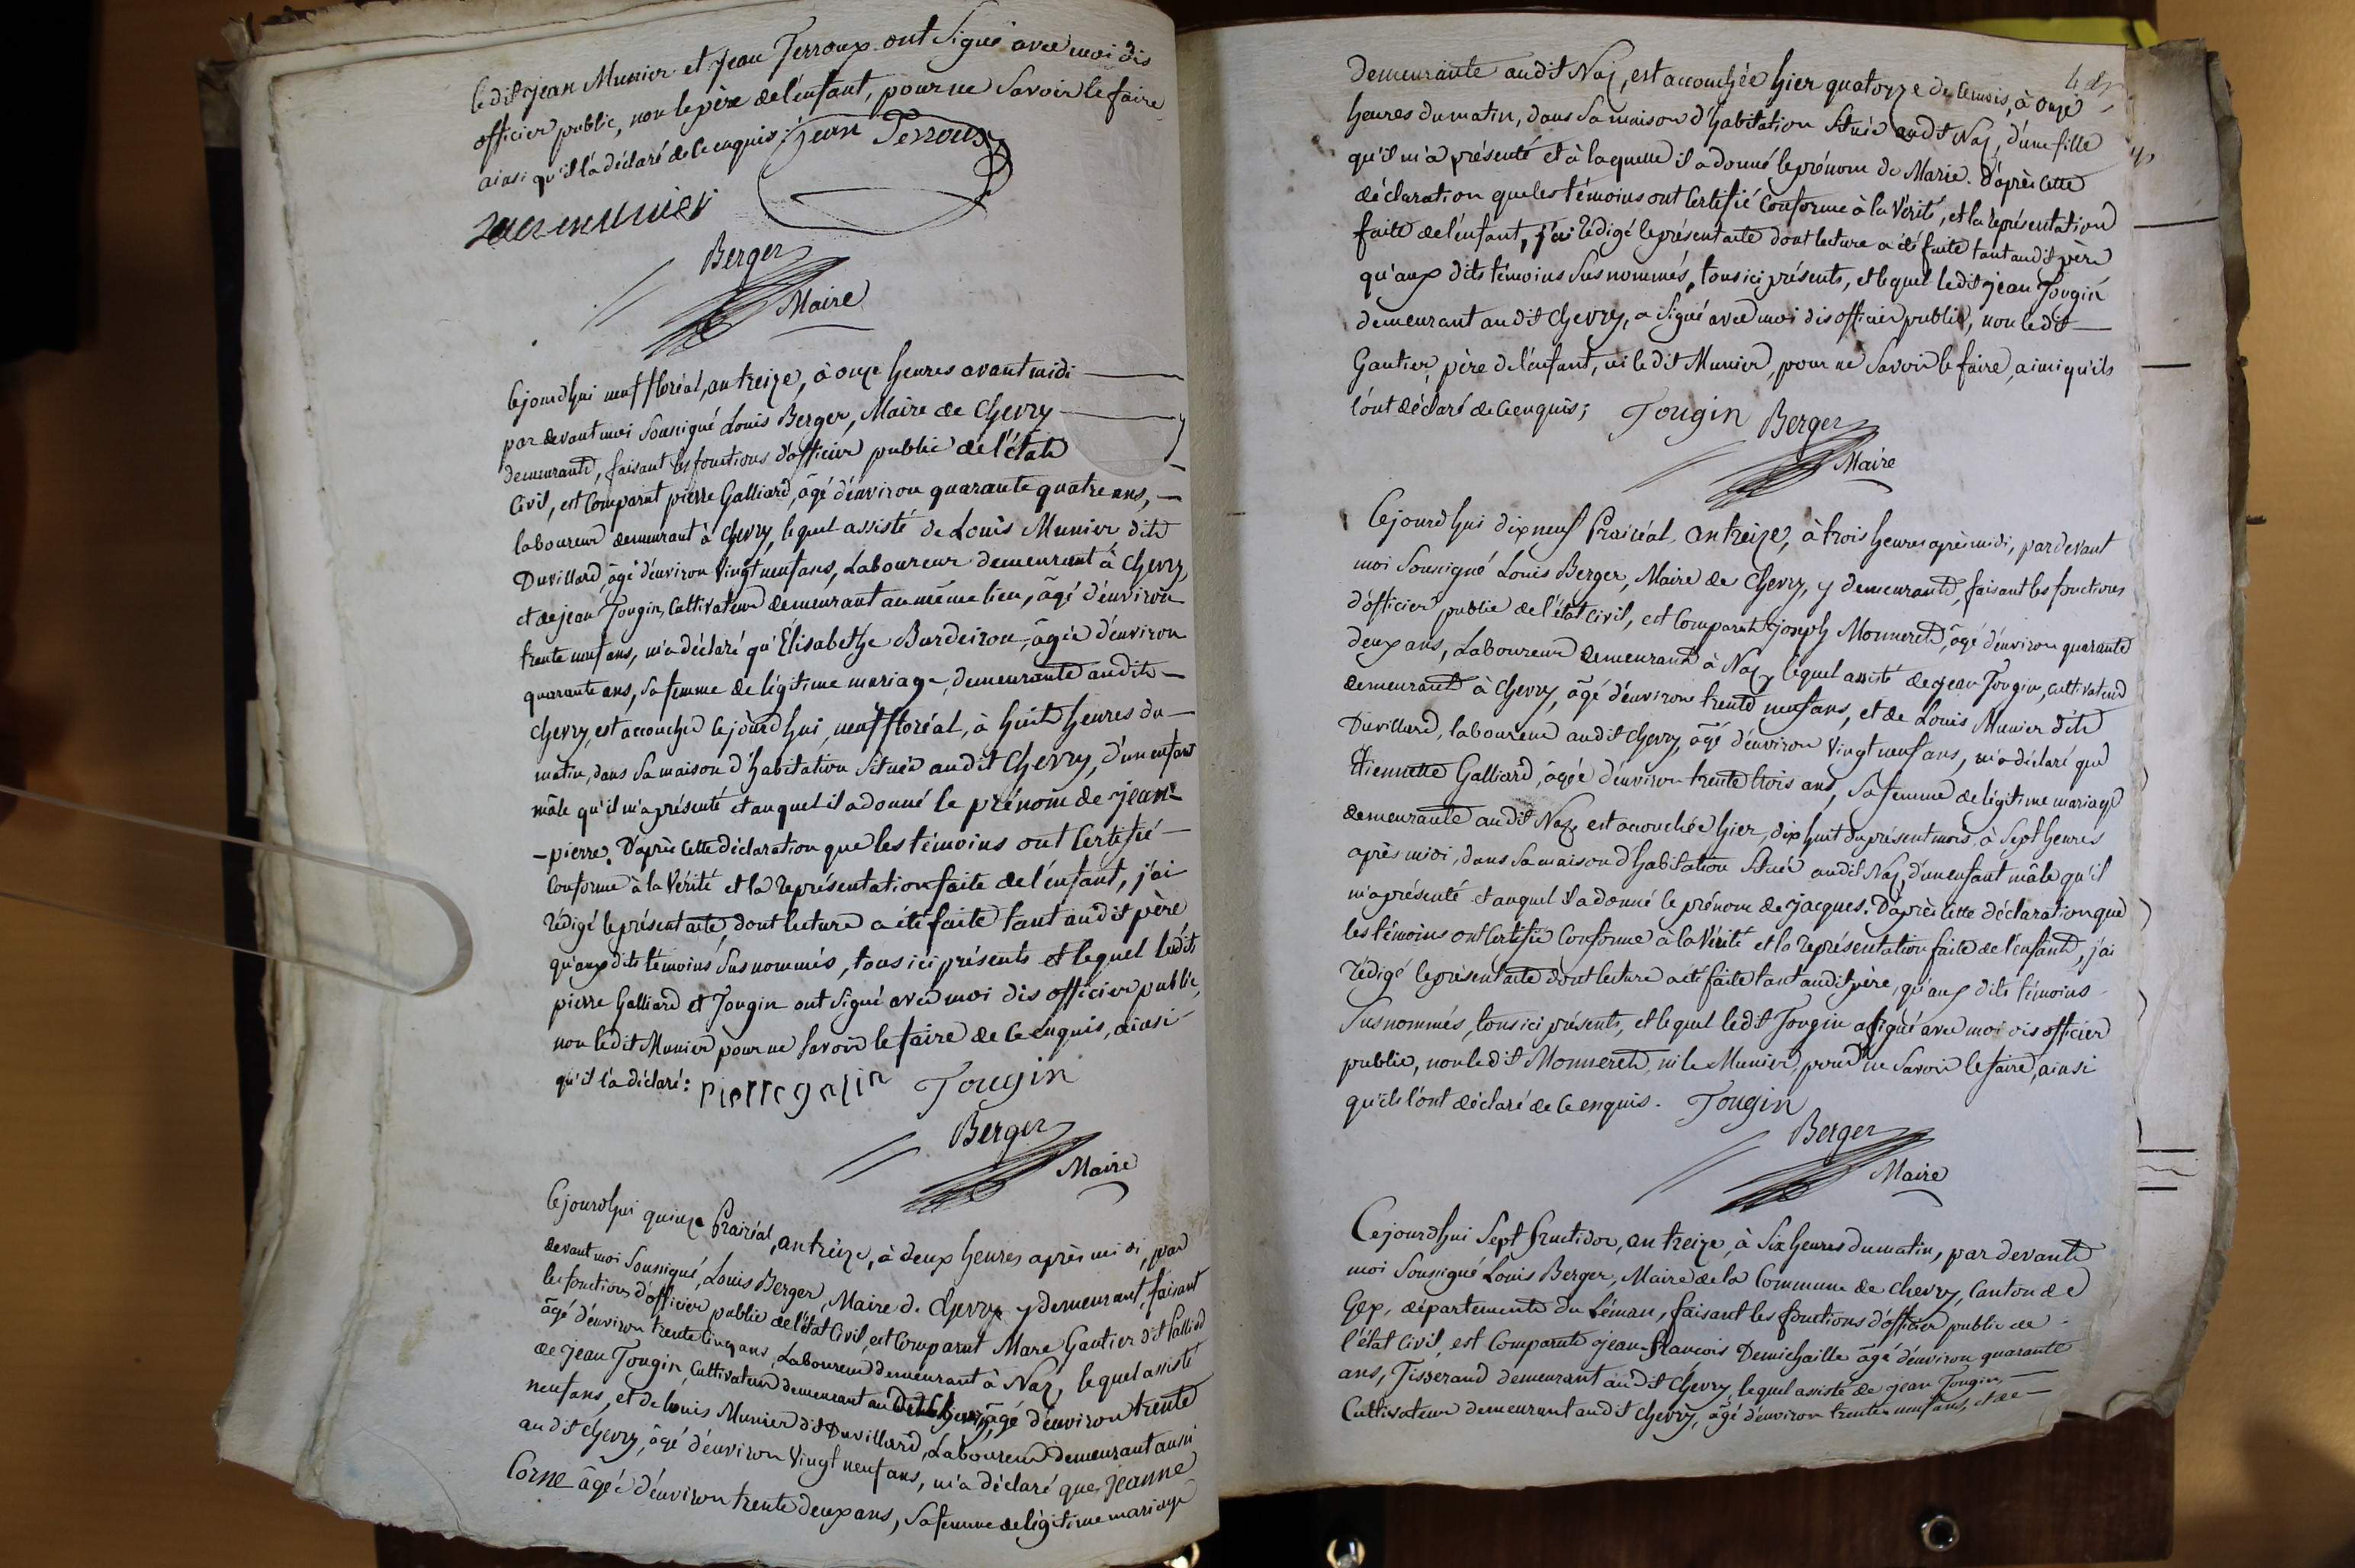 ledit jean Munier et jean Terroux ont signé avec moi dis
officier public, non le père de l'enfant, pour ne savoir le faire
ainsi qu'il l'a déclaré de ce enquis; jean Terroux
Berger
Maire
Cejourd'hui neuf floréal, an treize, à onze heures avant midi
par devant moi soussigné Louis Berger, Maire de Chevry
demeurant, faisant les fonctions d'officier public de l'état
Civil, est Comparut pierre Galliard, âgé d'environ quarante quatre ans,
laboureur demeurant à Chevry, lequel assisté de Louis Munier dit
Duvillard, âgé d'environ vingt neuf ans, Laboureur demeurant à Chevry,
et de jean Tougin, Cultivateur demeurant au même lieu, âgé d'environ
trente neuf ans, m'a déclaré qu'Élisabethe Burdeiron, âgée d'environ
quarante ans, sa femme de légitime mariage, demeurante audit
Chevry, est accouchée cejourd'hui, neuf floréal, à huit heures du
matin, dans sa maison d'habitation située audit Chevry, d'un enfant
mâle qu'il m'a présenté et auquel il a donné le prénom de jean-
-pierre. D'après cette déclaration que les témoins ont Certifié
Conforme à la vérité et la représentation faite de l'enfant, j'ai
rédigé le présent acte, dont lecture a été faite tant audit père
qu'aux dits témoins susnommés, tous ici présents et lequel ledit
pierre Galliard et Tougin ont signé avec moi dis officier public,
non ledit Munier pour ne savoir le faire de ce enquis, ainsi
qu'il l'a déclaré: pierre galia Tougin
Berger
Maire
Cejourd'hui quinze Prairéal, an treize, à deux heures après midi, par
devant moi soussigné, Louis Berger, Maire de Chevry y demeurant, faisant
les fonctions d'officier public de l'état Civil, est Comparut Marc Gautier dit
âgé d'environ trente cinq ans, Laboureur demeurant à Naz, lequel assisté
de jean Tougin Cultivateur demeurant au âgé d'environ trente
neuf ans, et de Louis Munier dit Duvillard, Laboureur demeurant aussi
audit Chevry, âgé d'environ vingt neuf ans, m'a déclaré que jeanne
Corne âgée d'environ trente deux ans, sa femme de légitime mariage
demeurante audit Naz, est accouchée hier quatorze du Cemois, à onze
heures du matin, dans sa maison d'habitation située audit Naz, d'une fille
qu'il m'a présenté et à laquelle il a donné le prénom de Marie. D'après cette
déclaration que les témoins ont Certifié Conforme à la vérité, et la représentation
faite de l'enfant, j'ai rédigé le présent acte dont lecture a été faite tant audit père
qu'aux dits témoins susnommés, tous ici présents, et lequel ledit jean Tougin
demeurant audit Chevry, a signé avec moi dis officier public, non ledit
Gautier, père de l'enfant, ni le dit Munier, pour ne savoir le faire, ainsi qu'ils
l'ont déclaré de ce enquis; Tougin Berger
Maire
Cejourd'hui dix neuf Prairéal, an treize, à trois heures après midi, par devant
moi soussigné Louis Berger, Maire de Chevry, y demeurant, faisant les fonctions
d'officier public de l'état Civil, est Comparut joseph Monneret, âgé d'environ quarante
deux ans, Laboureur demeurant à Naz, lequel assisté de jean Tougin, cultivateur
demeurant à Chevry, âgé d'environ trente neuf ans, et de Louis Munier dit
Duvillard, laboureur audit Chevry, âgé d'environ vingt neuf ans, m'a déclaré que
Etiennette Galliard, âgée d'environ trente trois ans, sa femme de légitime mariage
demeurante audit Naz, est accouchée hier, dix huit du présent mois, à sept heures
après midi, dans sa maison d'habitation située audit Naz, d'un enfant mâle qu'il
m'a présenté et auquel il a donné le prénom de jacques. D'après cette déclaration que
les témoins ont Certifié Conforme à la vérité et la représentation faite de l'enfant, j'ai
rédigé le présent acte dont lecture a été faite tant audit père, qu'aux dits témoins
susnommés, tous ici présents, et lequel ledit Tougin a signé avec moi dis officier
public, non ledit Monneret, ni le Munier, pour ne savoir le faire, ainsi
qu'ils l'ont déclaré de ce enquis. Tougin
Berger
Maire
Cejourd'hui sept fructidor, an treize, à six heures du matin, par devant
moi soussigné Louis Berger, Maire de la Commune de Chevry, Canton de
Gex, département du Léman, faisant les fonctions d'officier public de
l'état Civil, est Comparut jean-françois Demichaille âgé d'environ quarante
ans, Tisserand demeurant audit Chevry, lequel assisté de jean Tougin,
Cultivateur demeurant audit Chevry, âgé d'environ trente neuf ans, et de